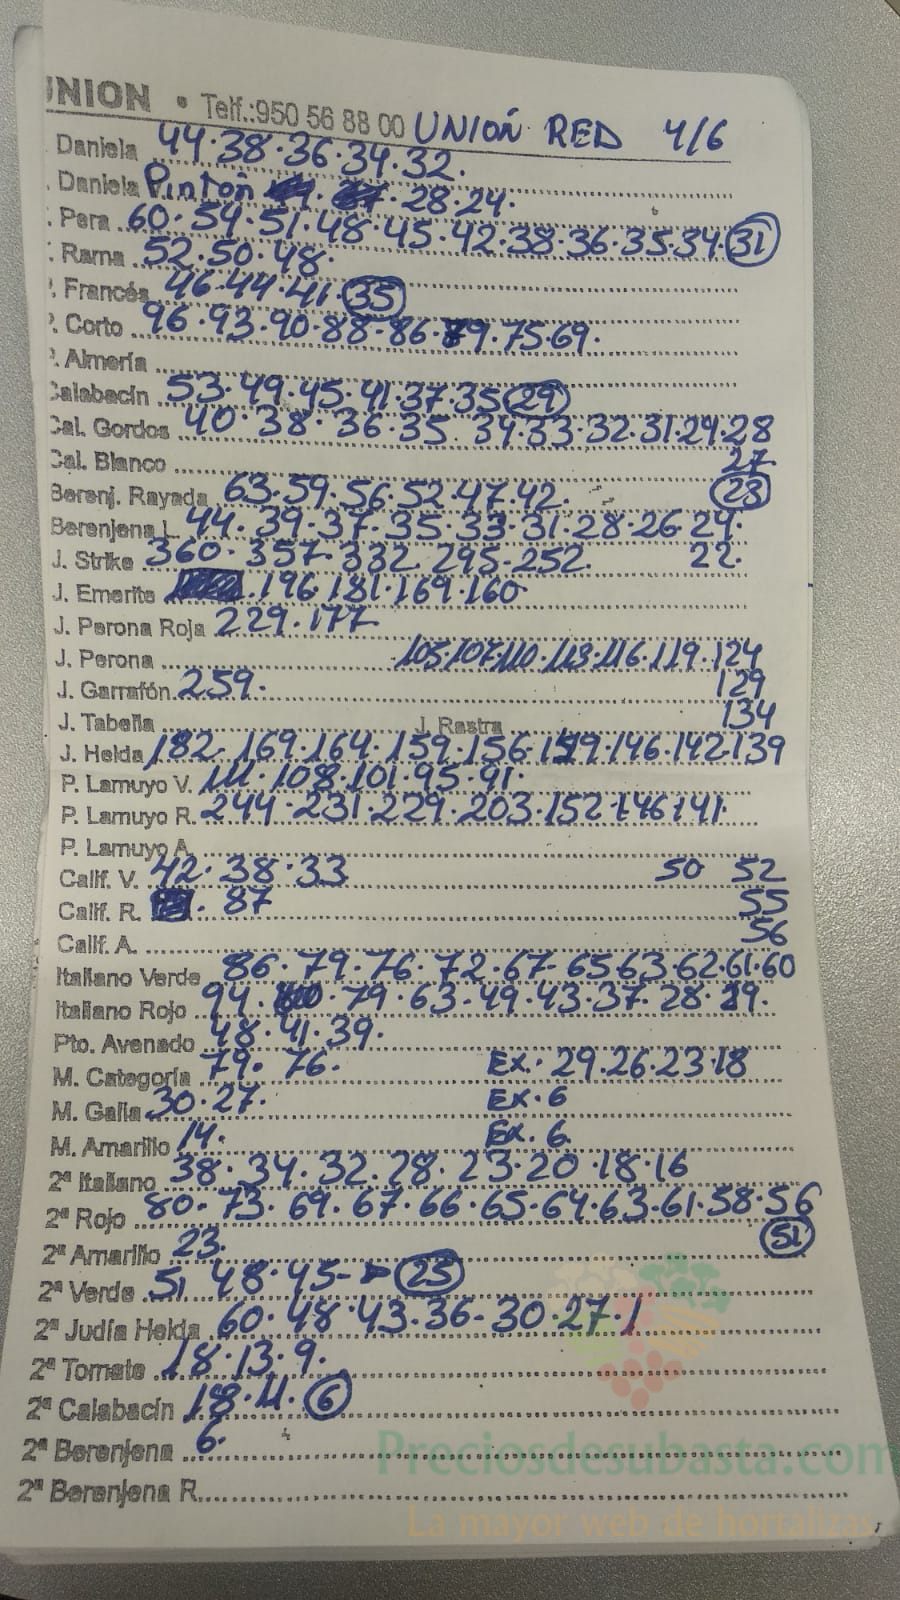 UNION • Telf.:950 56 88 00 UNIÓN RED 4/6
Daniela 44·38·36·34·32.
Daniela Pintón 28·24.
Pera 60·54·51·48·45·42·38·36·35·34·31
Rama 52·50·48.
P. Francés 46·44·41·35
P. Corto 96·93·90·88·86·79·75·69.
P. Almería
Calabacín 53·49·45·41·37·35 29
Cal. Gordos 40·38·36·35·34·33·32·31·29·28
Cal. Blanco 27
Berenj. Rayada 63·59·56·52·47·42. 23
Berenjena L. 44·39·37·35·33·31·28·26·24.
J. Strike 360·357·332·295-252. 22.
J. Emerite 196·181·169·160
J. Perona Roja 229·177
J. Perona 105·107·110·113·116·119·124
J. Garrafón 259. 129
J. Tabella J. Rastra 134
J. Helda 182·169·164·159·156·149·146·142·139
P. Lamuyo V. 111·108·101·95·91.
P. Lamuyo R. 244·231·229·203·152·146·141.
P. Lamuyo A.
Calif. V. 42·38·33 50 52
Calif. R. 87 55
Calif. A. 56
Italiano Verde 86·79·76·72·67-65·63·62·61·60
Italiano Rojo 94. 79·63·49·43·37·28·19.
Pto. Avenado 48·41·39.
M. Categoría 79·76. Ex. 29·26·23·18
M. Galia 30·27. Ex. 6
M. Amarillo 14. Ex. 6
2ª Italiano 38·34·32·28·23·20·18·16
2ª Rojo 80·73·69·67·66·65·64·63·61·58·56
2ª Amarillo 23. 51
2ª Verde 51 48·45-25
2ª Judía Helda 60·48·43·36-30·27·1
2ª Tomate 18·13·9.
2ª Calabacín 18·11·6
2ª Berenjena 6.
2ª Berenjena R.
Preciosdesubasta.com
La mayor web de hortalizas